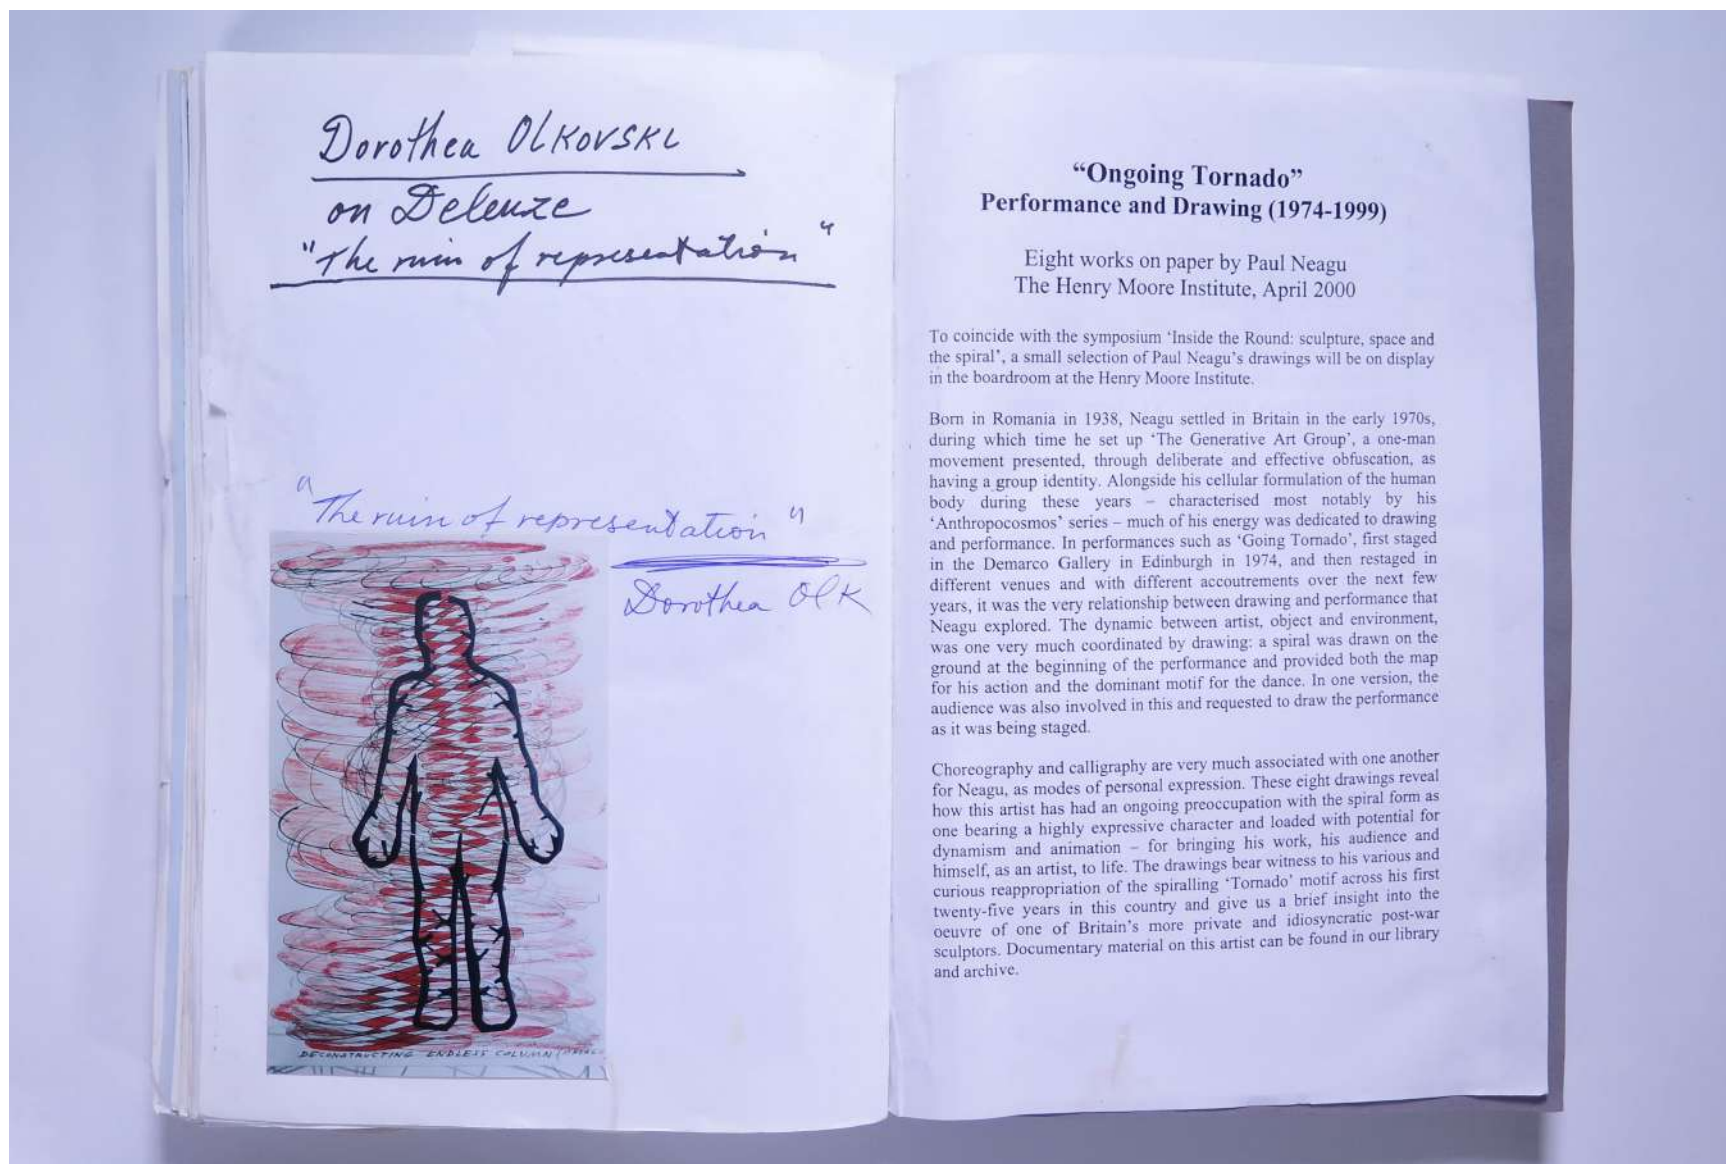 Dorothea OLKOVSKI
on Deleuze
"The ruin of representation"
"The ruin of representation"
Dorothea Olk
DECONSTRUCTING ENDLESS COLUMN
"Ongoing Tornado"
Performance and Drawing (1974-1999)
Eight works on paper by Paul Neagu
The Henry Moore Institute, April 2000
To coincide with the symposium 'Inside the Round: sculpture, space and
the spiral', a small selection of Paul Neagu's drawings will be on display
in the boardroom at the Henry Moore Institute.
Born in Romania in 1938, Neagu settled in Britain in the early 1970s,
during which time he set up 'The Generative Art Group', a one-man
movement presented, through deliberate and effective obfuscation, as
having a group identity. Alongside his cellular formulation of the human
body during these years – characterised most notably by his
'Anthropocosmos' series – much of his energy was dedicated to drawing
and performance. In performances such as 'Going Tornado', first staged
in the Demarco Gallery in Edinburgh in 1974, and then restaged in
different venues and with different accoutrements over the next few
years, it was the very relationship between drawing and performance that
Neagu explored. The dynamic between artist, object and environment,
was one very much coordinated by drawing: a spiral was drawn on the
ground at the beginning of the performance and provided both the map
for his action and the dominant motif for the dance. In one version, the
audience was also involved in this and requested to draw the performance
as it was being staged.
Choreography and calligraphy are very much associated with one another
for Neagu, as modes of personal expression. These eight drawings reveal
how this artist has had an ongoing preoccupation with the spiral form as
one bearing a highly expressive character and loaded with potential for
dynamism and animation – for bringing his work, his audience and
himself, as an artist, to life. The drawings bear witness to his various and
curious reappropriation of the spiralling 'Tornado' motif across his first
twenty-five years in this country and give us a brief insight into the
oeuvre of one of Britain's more private and idiosyncratic post-war
sculptors. Documentary material on this artist can be found in our library
and archive.